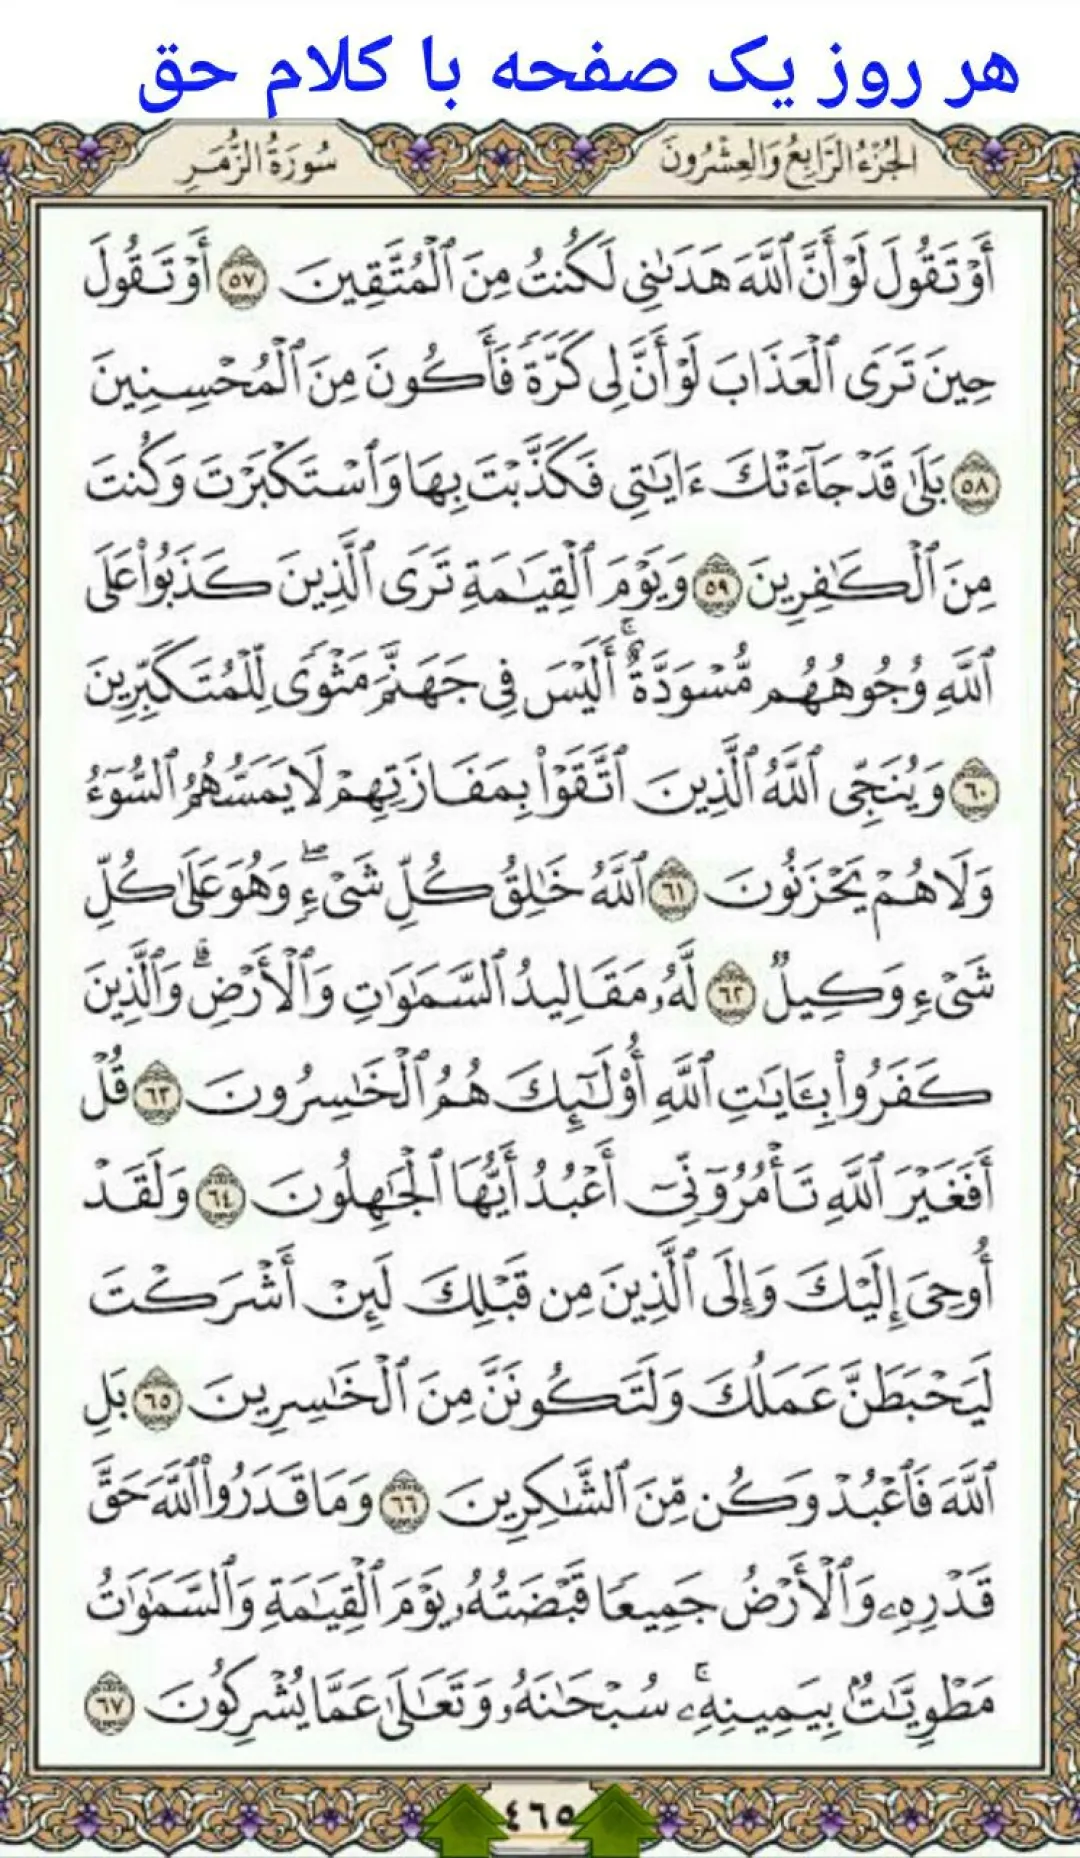 هر روز یک صفحه با کلام حق
الجُزْءُ الرَّابِعُ وَالعِشْرُونَ سُورَةُ الزُّمَرِ
أَوْ تَقُولَ لَوْ أَنَّ ٱللَّهَ هَدَىٰنِى لَكُنتُ مِنَ ٱلْمُتَّقِينَ ٥٧ أَوْ تَقُولَ
حِينَ تَرَى ٱلْعَذَابَ لَوْ أَنَّ لِى كَرَّةً فَأَكُونَ مِنَ ٱلْمُحْسِنِينَ
٥٨ بَلَىٰ قَدْ جَآءَتْكَ ءَايَٰتِى فَكَذَّبْتَ بِهَا وَٱسْتَكْبَرْتَ وَكُنتَ
مِنَ ٱلْكَٰفِرِينَ ٥٩ وَيَوْمَ ٱلْقِيَٰمَةِ تَرَى ٱلَّذِينَ كَذَبُوا۟ عَلَى
ٱللَّهِ وُجُوهُهُم مُّسْوَدَّةٌ ۚ أَلَيْسَ فِى جَهَنَّمَ مَثْوًى لِّلْمُتَكَبِّرِينَ
٦٠ وَيُنَجِّى ٱللَّهُ ٱلَّذِينَ ٱتَّقَوْا۟ بِمَفَازَتِهِمْ لَا يَمَسُّهُمُ ٱلسُّوٓءُ
وَلَا هُمْ يَحْزَنُونَ ٦١ ٱللَّهُ خَٰلِقُ كُلِّ شَىْءٍ ۖ وَهُوَ عَلَىٰ كُلِّ
شَىْءٍ وَكِيلٌ ٦٢ لَّهُۥ مَقَالِيدُ ٱلسَّمَٰوَٰتِ وَٱلْأَرْضِ ۗ وَٱلَّذِينَ
كَفَرُوا۟ بِـَٔايَٰتِ ٱللَّهِ أُو۟لَٰٓئِكَ هُمُ ٱلْخَٰسِرُونَ ٦٣ قُلْ
أَفَغَيْرَ ٱللَّهِ تَأْمُرُوٓنِّىٓ أَعْبُدُ أَيُّهَا ٱلْجَٰهِلُونَ ٦٤ وَلَقَدْ
أُوحِىَ إِلَيْكَ وَإِلَى ٱلَّذِينَ مِن قَبْلِكَ لَئِنْ أَشْرَكْتَ
لَيَحْبَطَنَّ عَمَلُكَ وَلَتَكُونَنَّ مِنَ ٱلْخَٰسِرِينَ ٦٥ بَلِ
ٱللَّهَ فَٱعْبُدْ وَكُن مِّنَ ٱلشَّٰكِرِينَ ٦٦ وَمَا قَدَرُوا۟ ٱللَّهَ حَقَّ
قَدْرِهِۦ وَٱلْأَرْضُ جَمِيعًا قَبْضَتُهُۥ يَوْمَ ٱلْقِيَٰمَةِ وَٱلسَّمَٰوَٰتُ
مَطْوِيَّٰتٌۢ بِيَمِينِهِۦ ۚ سُبْحَٰنَهُۥ وَتَعَٰلَىٰ عَمَّا يُشْرِكُونَ ٦٧
٤٦٥